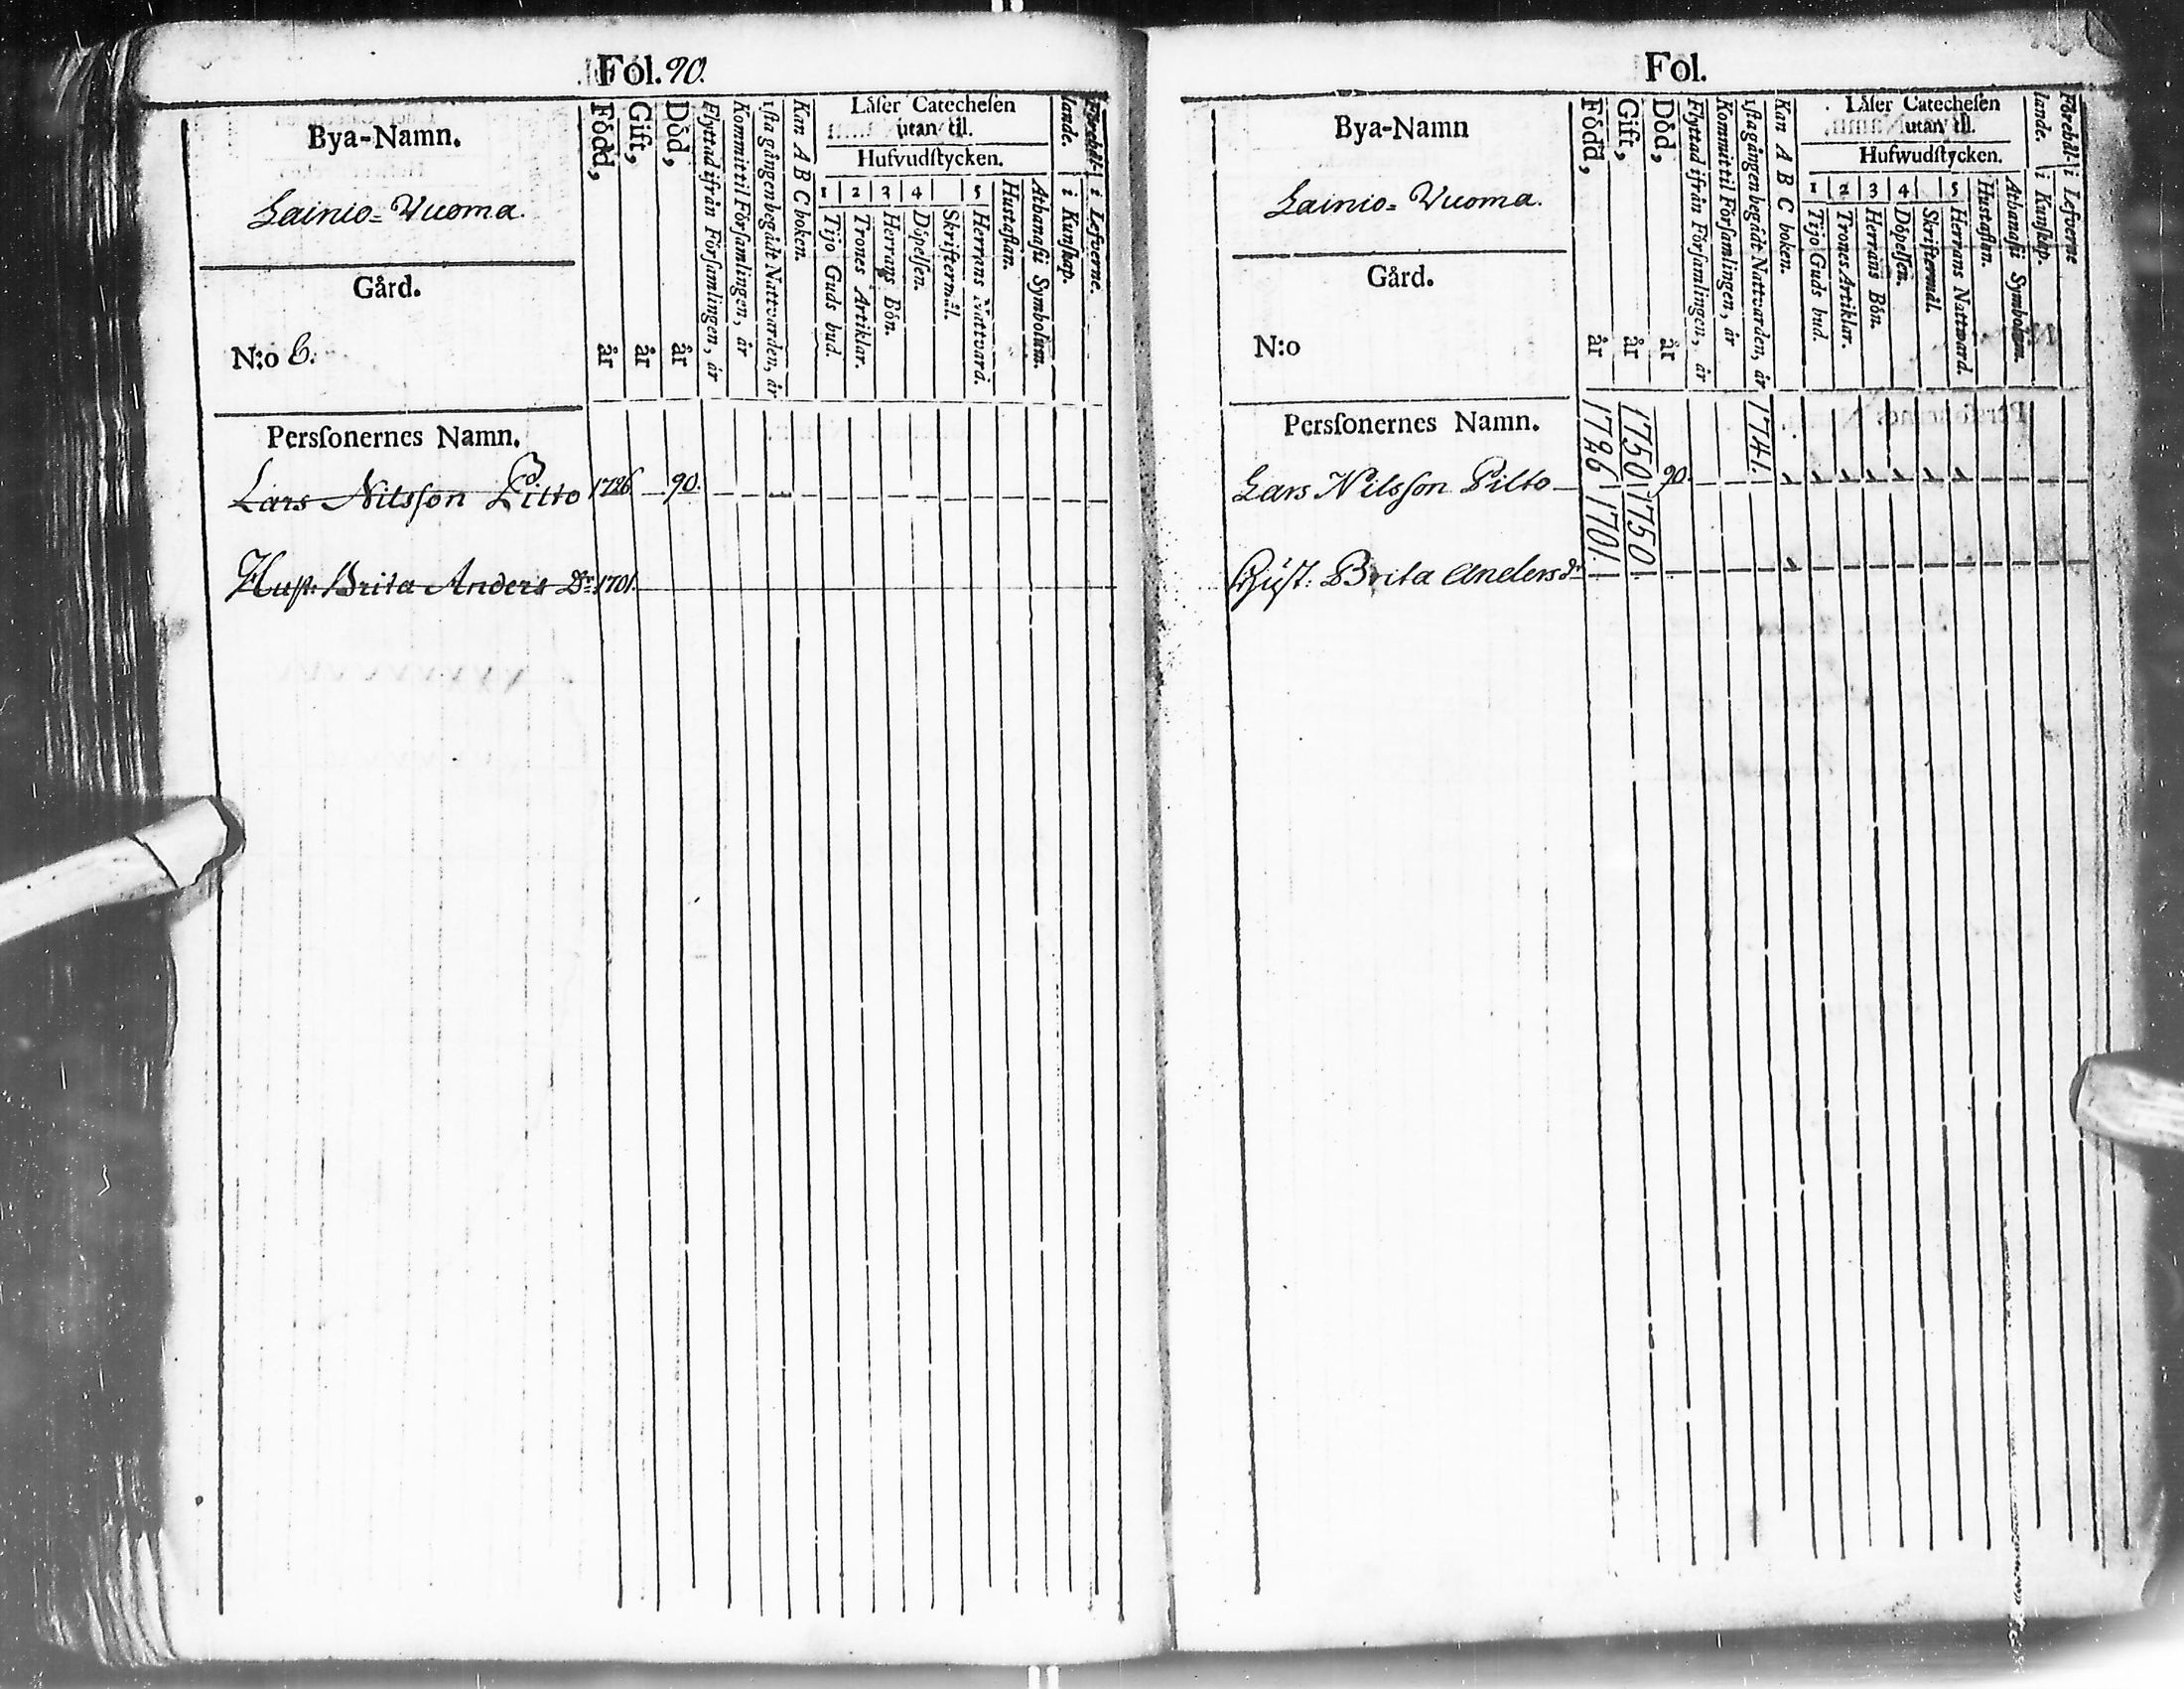 Fol. 90.
Bya-Namn.
Lainio=Vuoma.
Gård.
N:o 6.
Persſonernes Namn.
Född, år
Gift, år
Död, år
Flyttad ifrån Förſamlingen, år
Kommit til Förſamlingen, år
1ſta gången begådt Nattvarden, år
Kan A B C boken.
Läſer Catecheſen
utan til.
Hufvudſtycken.
1 2 3 4 5
Tijo Guds bud.
Trones Artiklar.
Herrans Bön.
Döpelſen.
Skriftermål.
Herrans Nattvard.
Huſtaflan.
Athanaſii Symbolum.
Förehål-
lande.
i Kunſkap.
i Lefverne.
Lars Nilsſon Pilto 1726 90.
Huſt: Brita Anders Dr: 1701.
Fol.
Bya-Namn
Lainio=Vuoma.
Gård.
N:o
Persſonernes Namn.
Född, år
Gift, år
Död, år
Flyttad ifrån Förſamlingen, år
Kommit til Förſamlingen, år
1ſta gången begådt Nattvarden, år
Kan A B C boken.
Läſer Catecheſen
utan til.
Hufwudſtycken.
1 2 3 4 5
Tijo Guds bud.
Trones Artiklar.
Herrans Bön.
Döpelſen.
Skriftermål.
Herrans Nattward.
Huſtaflan.
Athanaſii Symbolum.
Förehål-
lande.
i Kunſkap.
i Lefverne
Lars Nilsſon Pilto 1726 1750 90 1741.
Huſt: Brita Anders dr 1701. 1750